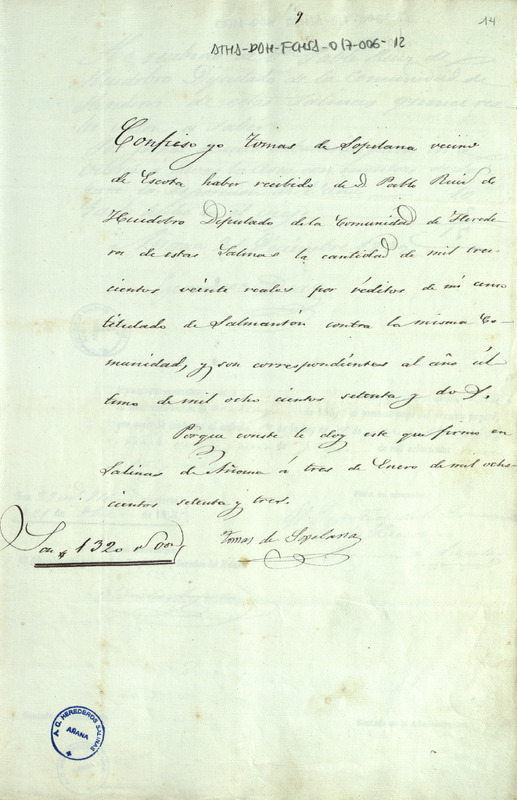 9
14
ATHA-DAH-FGHSA-017-006-12
Confieso yo Tomas de Sopelana vecino
de Escota haber recibido de D. Pablo Ruiz de
Huidobro Deputado de la Comunidad de Herede
ra de estas Salinas la cantidad de mil tres-
cientos veinte reales por réditos de mi censo
titulado de Salmantón contra la misma Co-
munidad, y son correspondientes al año úl
timo de mil ocho cientos setenta y dos.
Porque conste le doy este que firmo en
Salinas de Añana á tres de Enero de mil ocho-
cientos setenta y tres.
Son # 1320 rs. von
Tomas de Sopelana
A. C. HEREDEROS SALINAS
AÑANA